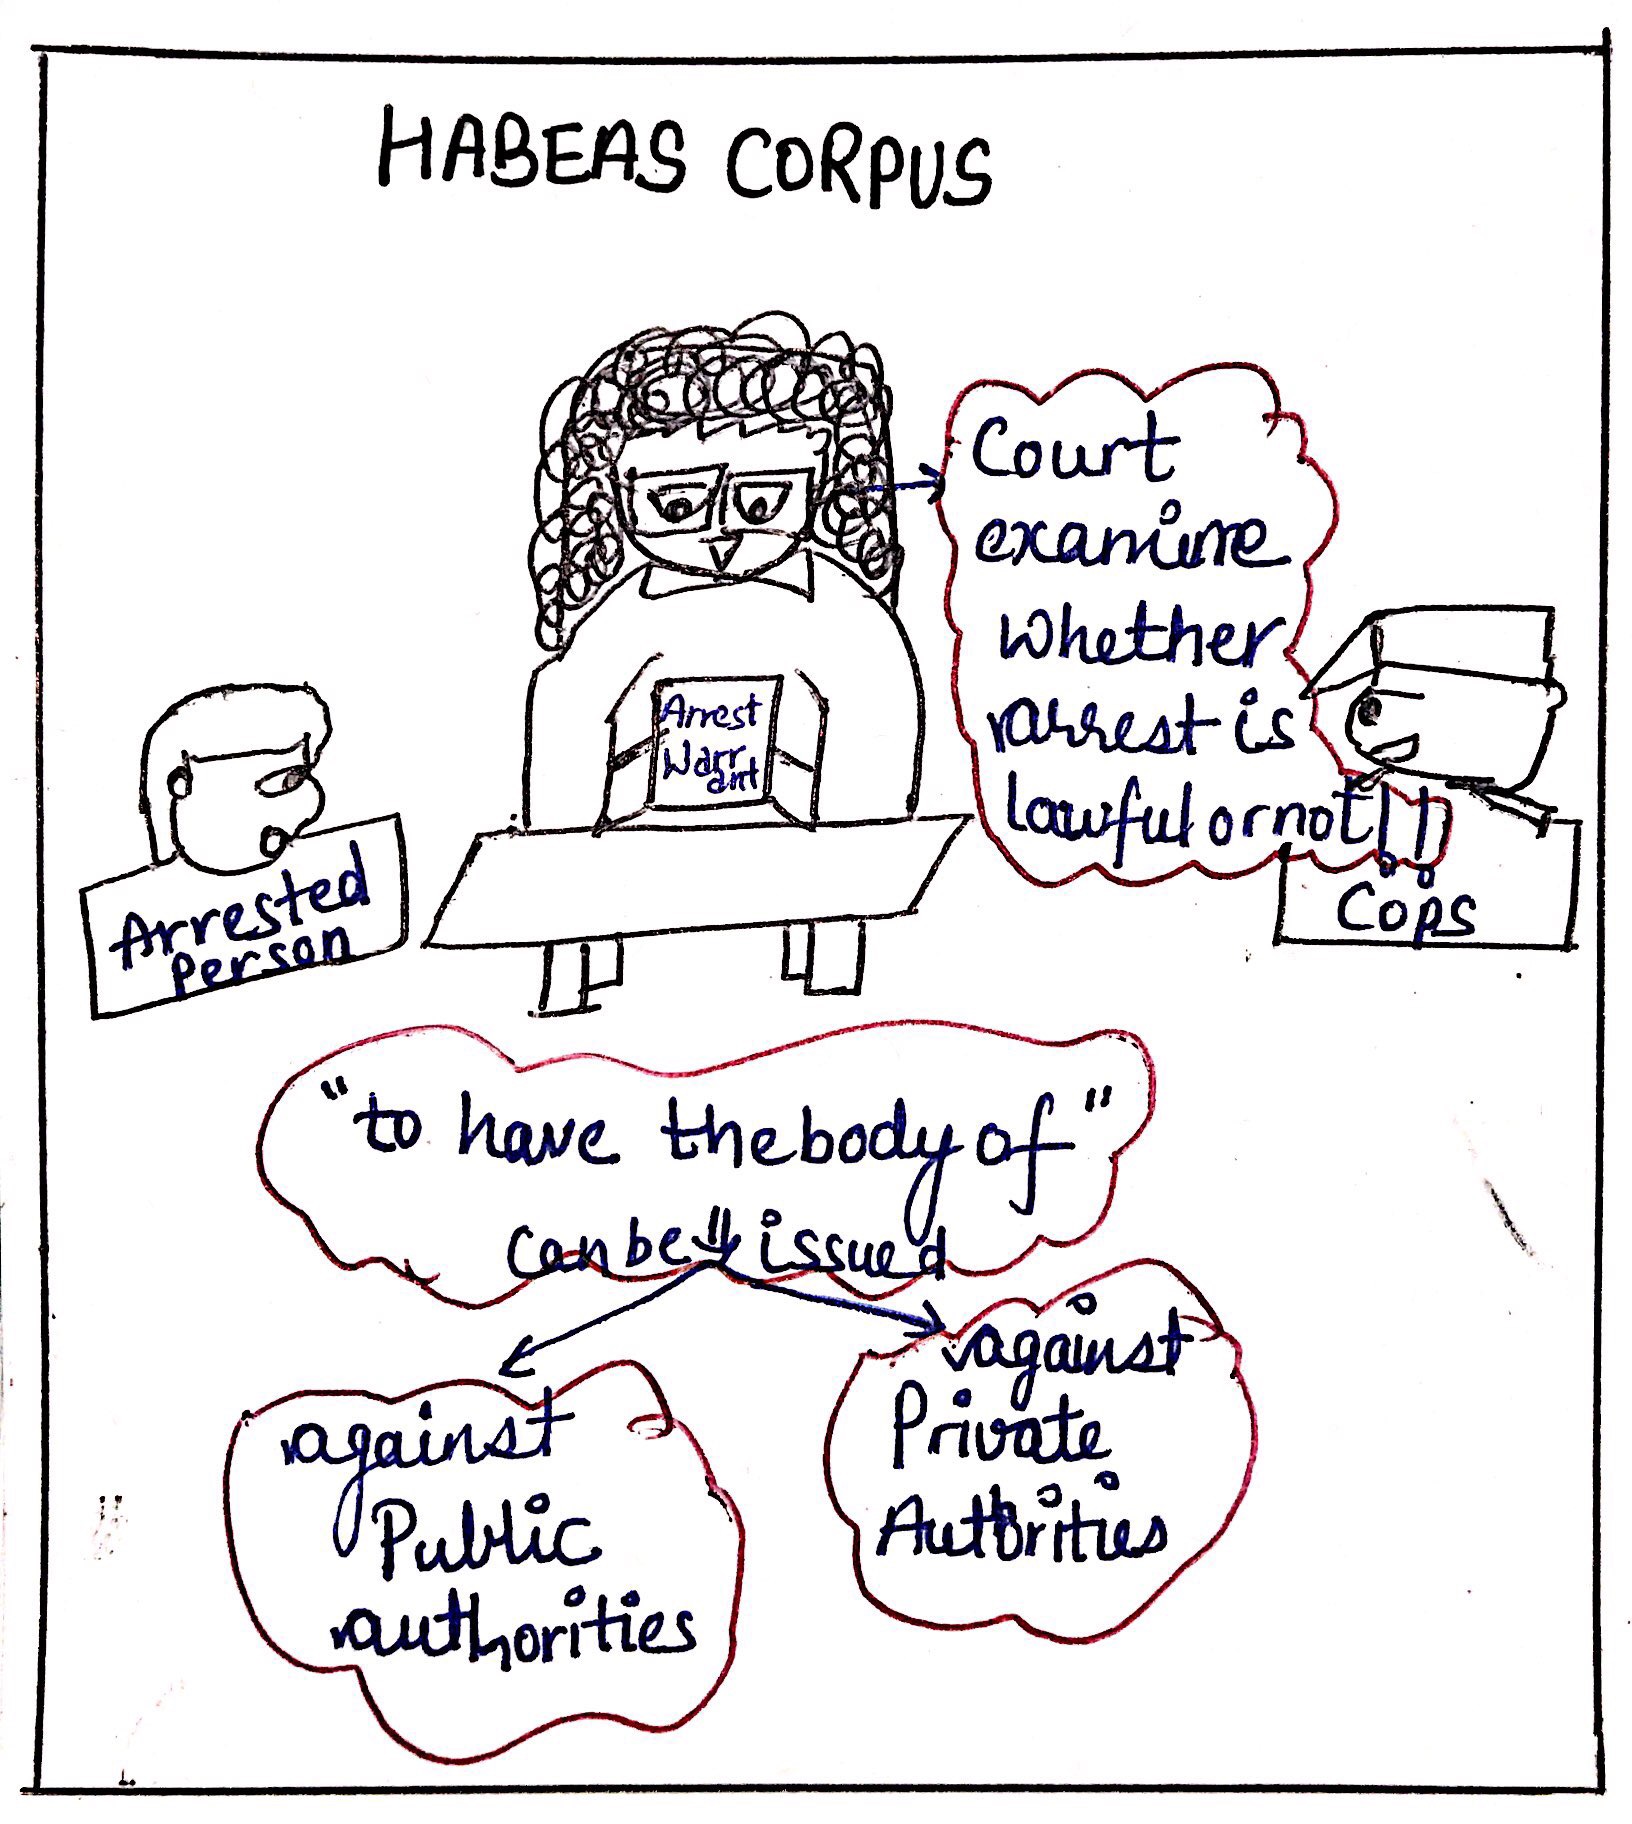 HABEAS CORPUS
Court
examine
whether
arrest is
lawful or not!!
Arrest
Warr
ant
Arrested
Person
Cops
"to have the body of"
can be issued
against
Public
authorities
against
Private
Authorities